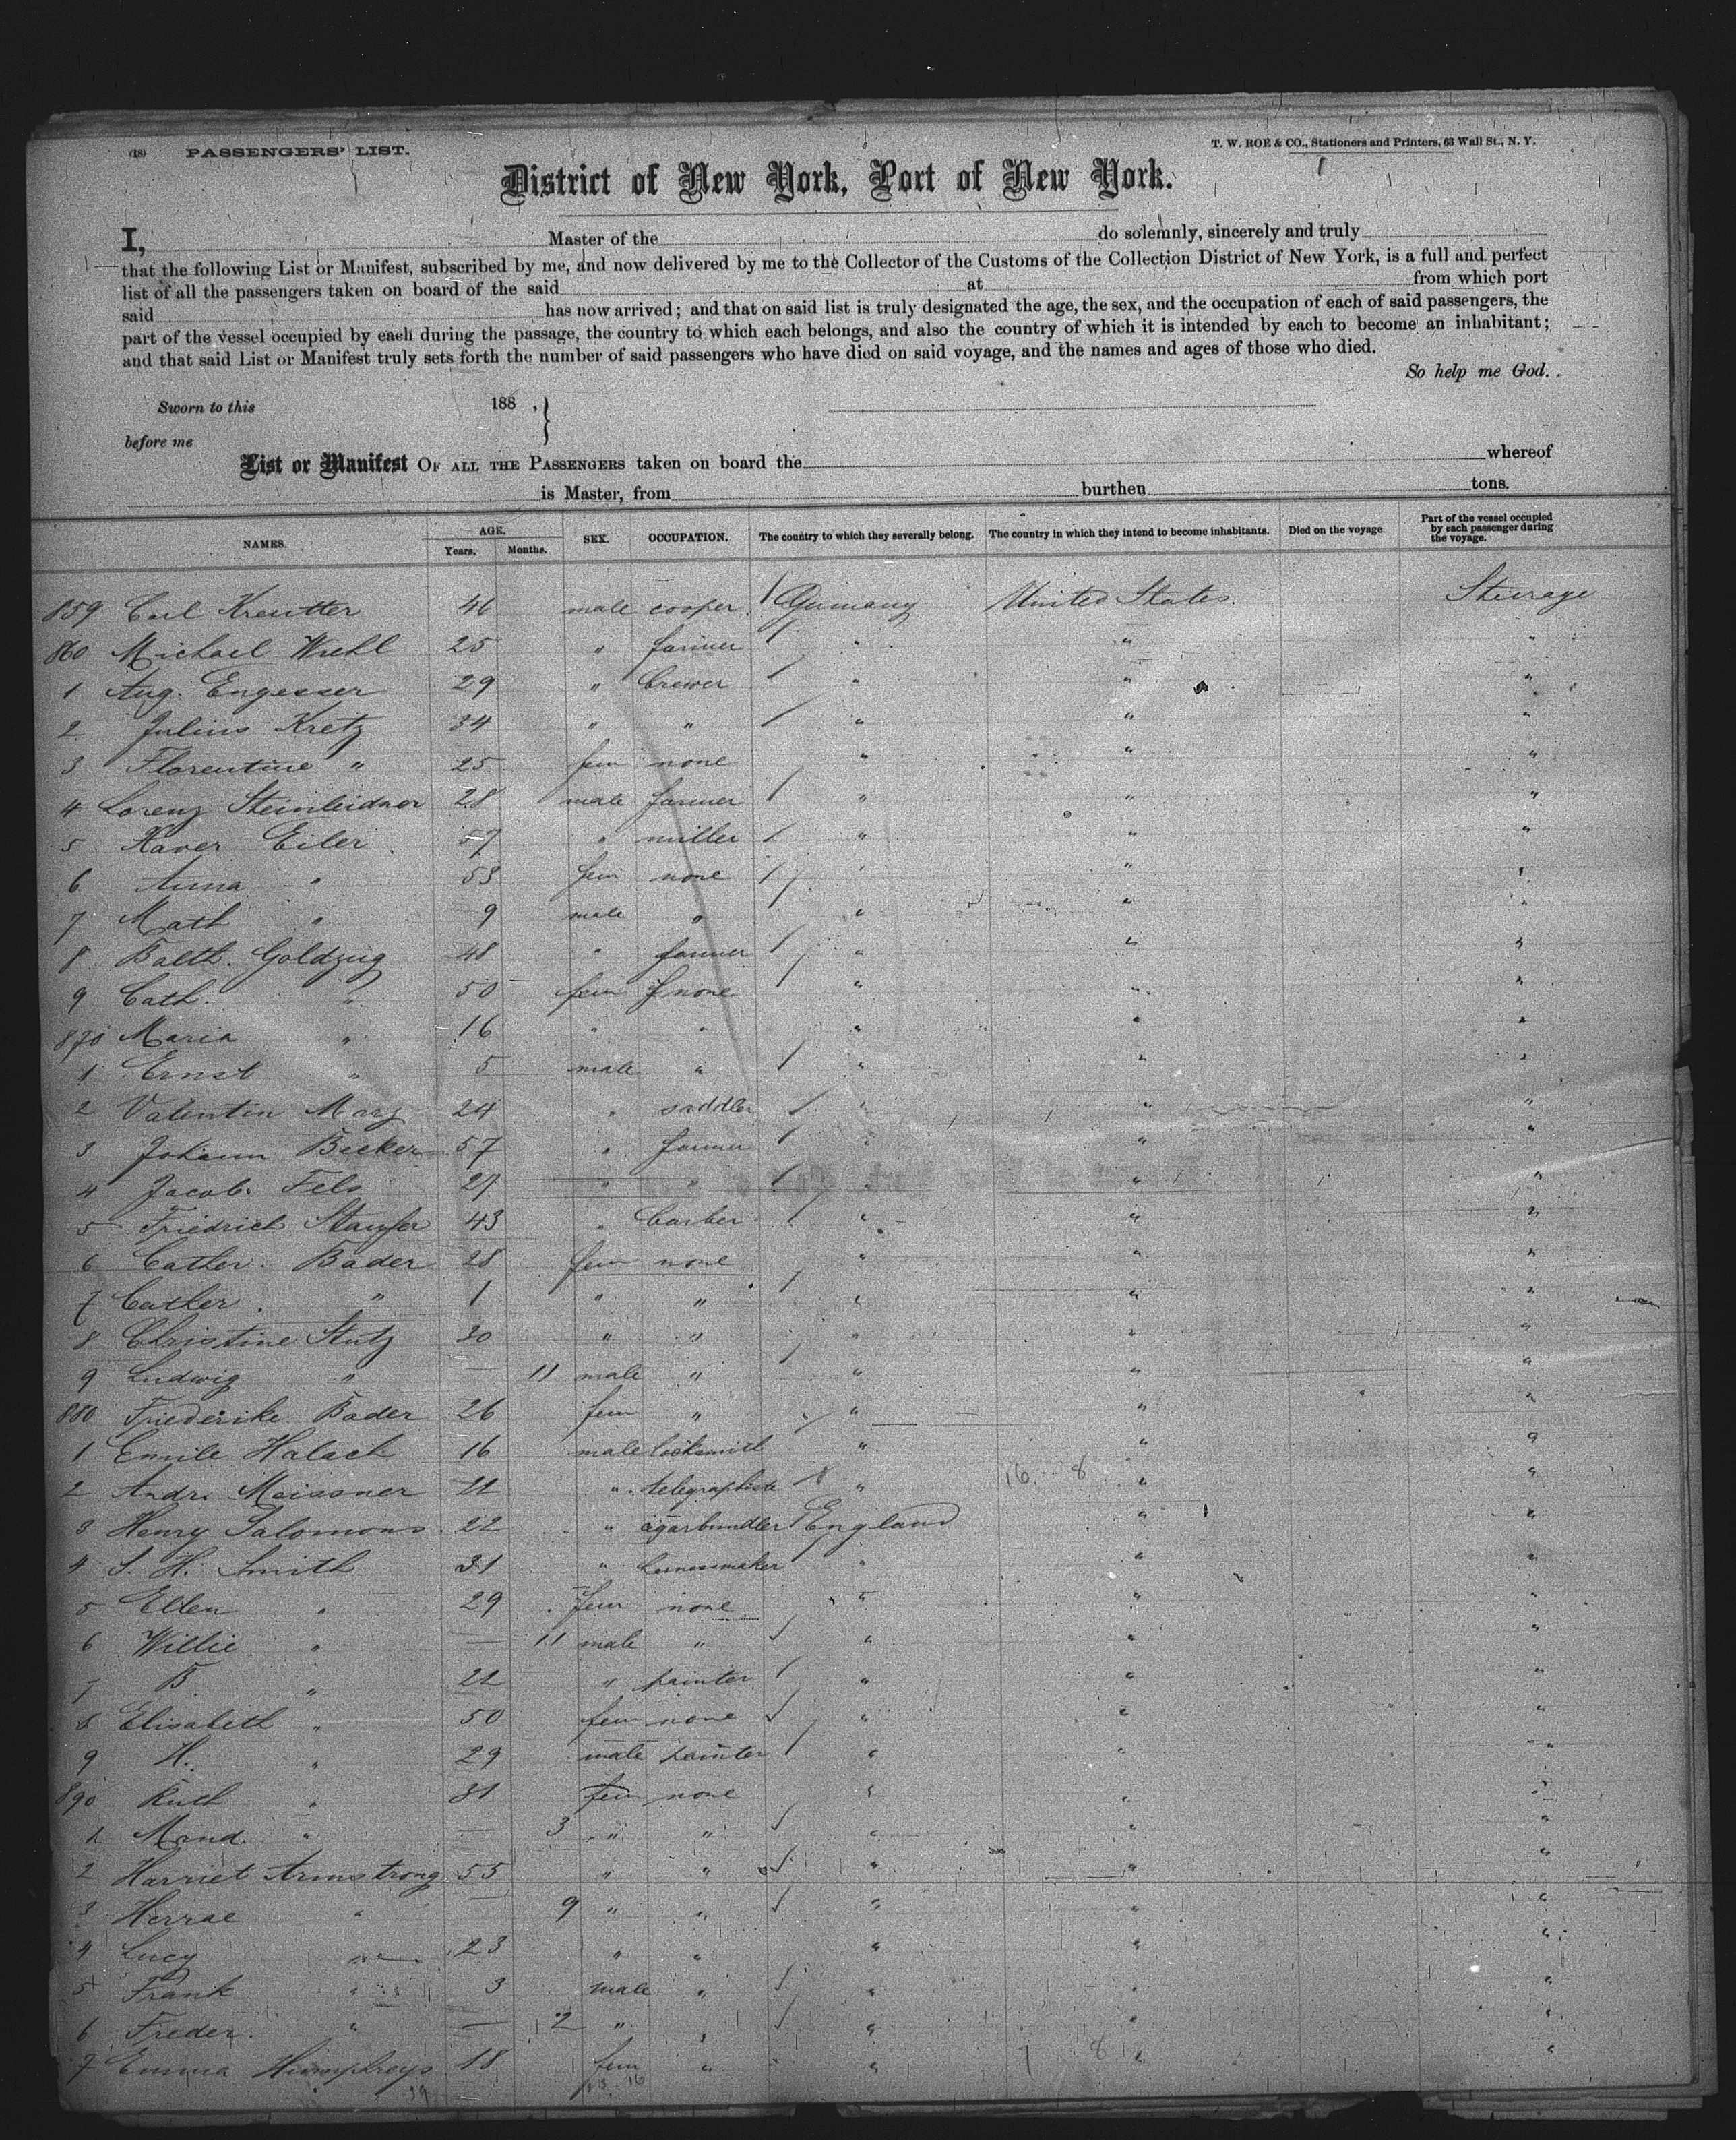 (18) PASSENGERS' LIST. T. W. ROE & CO., Stationers and Printers, 63 Wall St., N. Y.
District of New York, Port of New York.
I, Master of the do solemnly, sincerely and truly
that the following List or Manifest, subscribed by me, and now delivered by me to the Collector of the Customs of the Collection District of New York, is a full and perfect
list of all the passengers taken on board of the said at from which port
said has now arrived; and that on said list is truly designated the age, the sex, and the occupation of each of said passengers, the
part of the vessel occupied by each during the passage, the country to which each belongs, and also the country of which it is intended by each to become an inhabitant;
and that said List or Manifest truly sets forth the number of said passengers who have died on said voyage, and the names and ages of those who died.
So help me God.
Sworn to this 188 , }
before me
List or Manifest OF ALL THE PASSENGERS taken on board the whereof
is Master, from burthen tons.
NAMES. AGE. Years. Months. SEX. OCCUPATION. The country to which they severally belong. The country in which they intend to become inhabitants. Died on the voyage. Part of the vessel occupied by each passenger during the voyage.
859 Carl Kreutter 46 male cooper Germany United States Steerage
860 Michael Wrehl 25 " farmer " " "
1 Aug. Engesser 29 " brewer " " "
2 Julius Kretz 34 " " " " "
3 Florentine " 25 fem none " " "
4 Lorenz Steinleidner 28 male farmer " " "
5 Xaver Eiler 57 " miller " " "
6 Anna " 53 fem none " " "
7 Math " 9 male " " " "
8 Balth. Goldzug 48 " farmer " " "
9 Cath. " 50 fem none " " "
870 Maria " 16 " " " " "
1 Ernst " 5 male " " " "
2 Valentin Marz 24 " saddler " " "
3 Johann Becker 57 " farmer " " "
4 Jacob Fels 27 " " " " "
5 Friedrich Staufer 43 " barber " " "
6 Cather. Bader 28 fem none " " "
7 Cather. " 1 " " " " "
8 Christine Stutz 30 " " " " "
9 Ludwig " — 11 male " " " "
880 Friederike Bader 26 fem " " " "
1 Emile Halach 16 male locksmith " " "
2 Andr. Meissner 21 " telegraphiste " 16 8 " "
3 Henry Salomons 22 " cigarbundler England " "
4 S. H. Smith 31 " harnessmaker " " "
5 Ellen " 29 fem none " " "
6 Willie " — 11 male " " " "
7 B " 22 " painter " " "
8 Elisabeth " 50 fem none " " "
9 H. " 29 male painter " " "
890 Ruth " 31 fem none " " "
1 Mand. " — 3 " " " " "
2 Harriet Armstrong 55 " " " " "
3 Herrae " — 9 " " " " "
4 Lucy " 23 " " " " "
5 Frank " 3 male " " " "
6 Freder. " — 2 " " " " "
7 Emma Humphreys 18 fem " " 8 " "